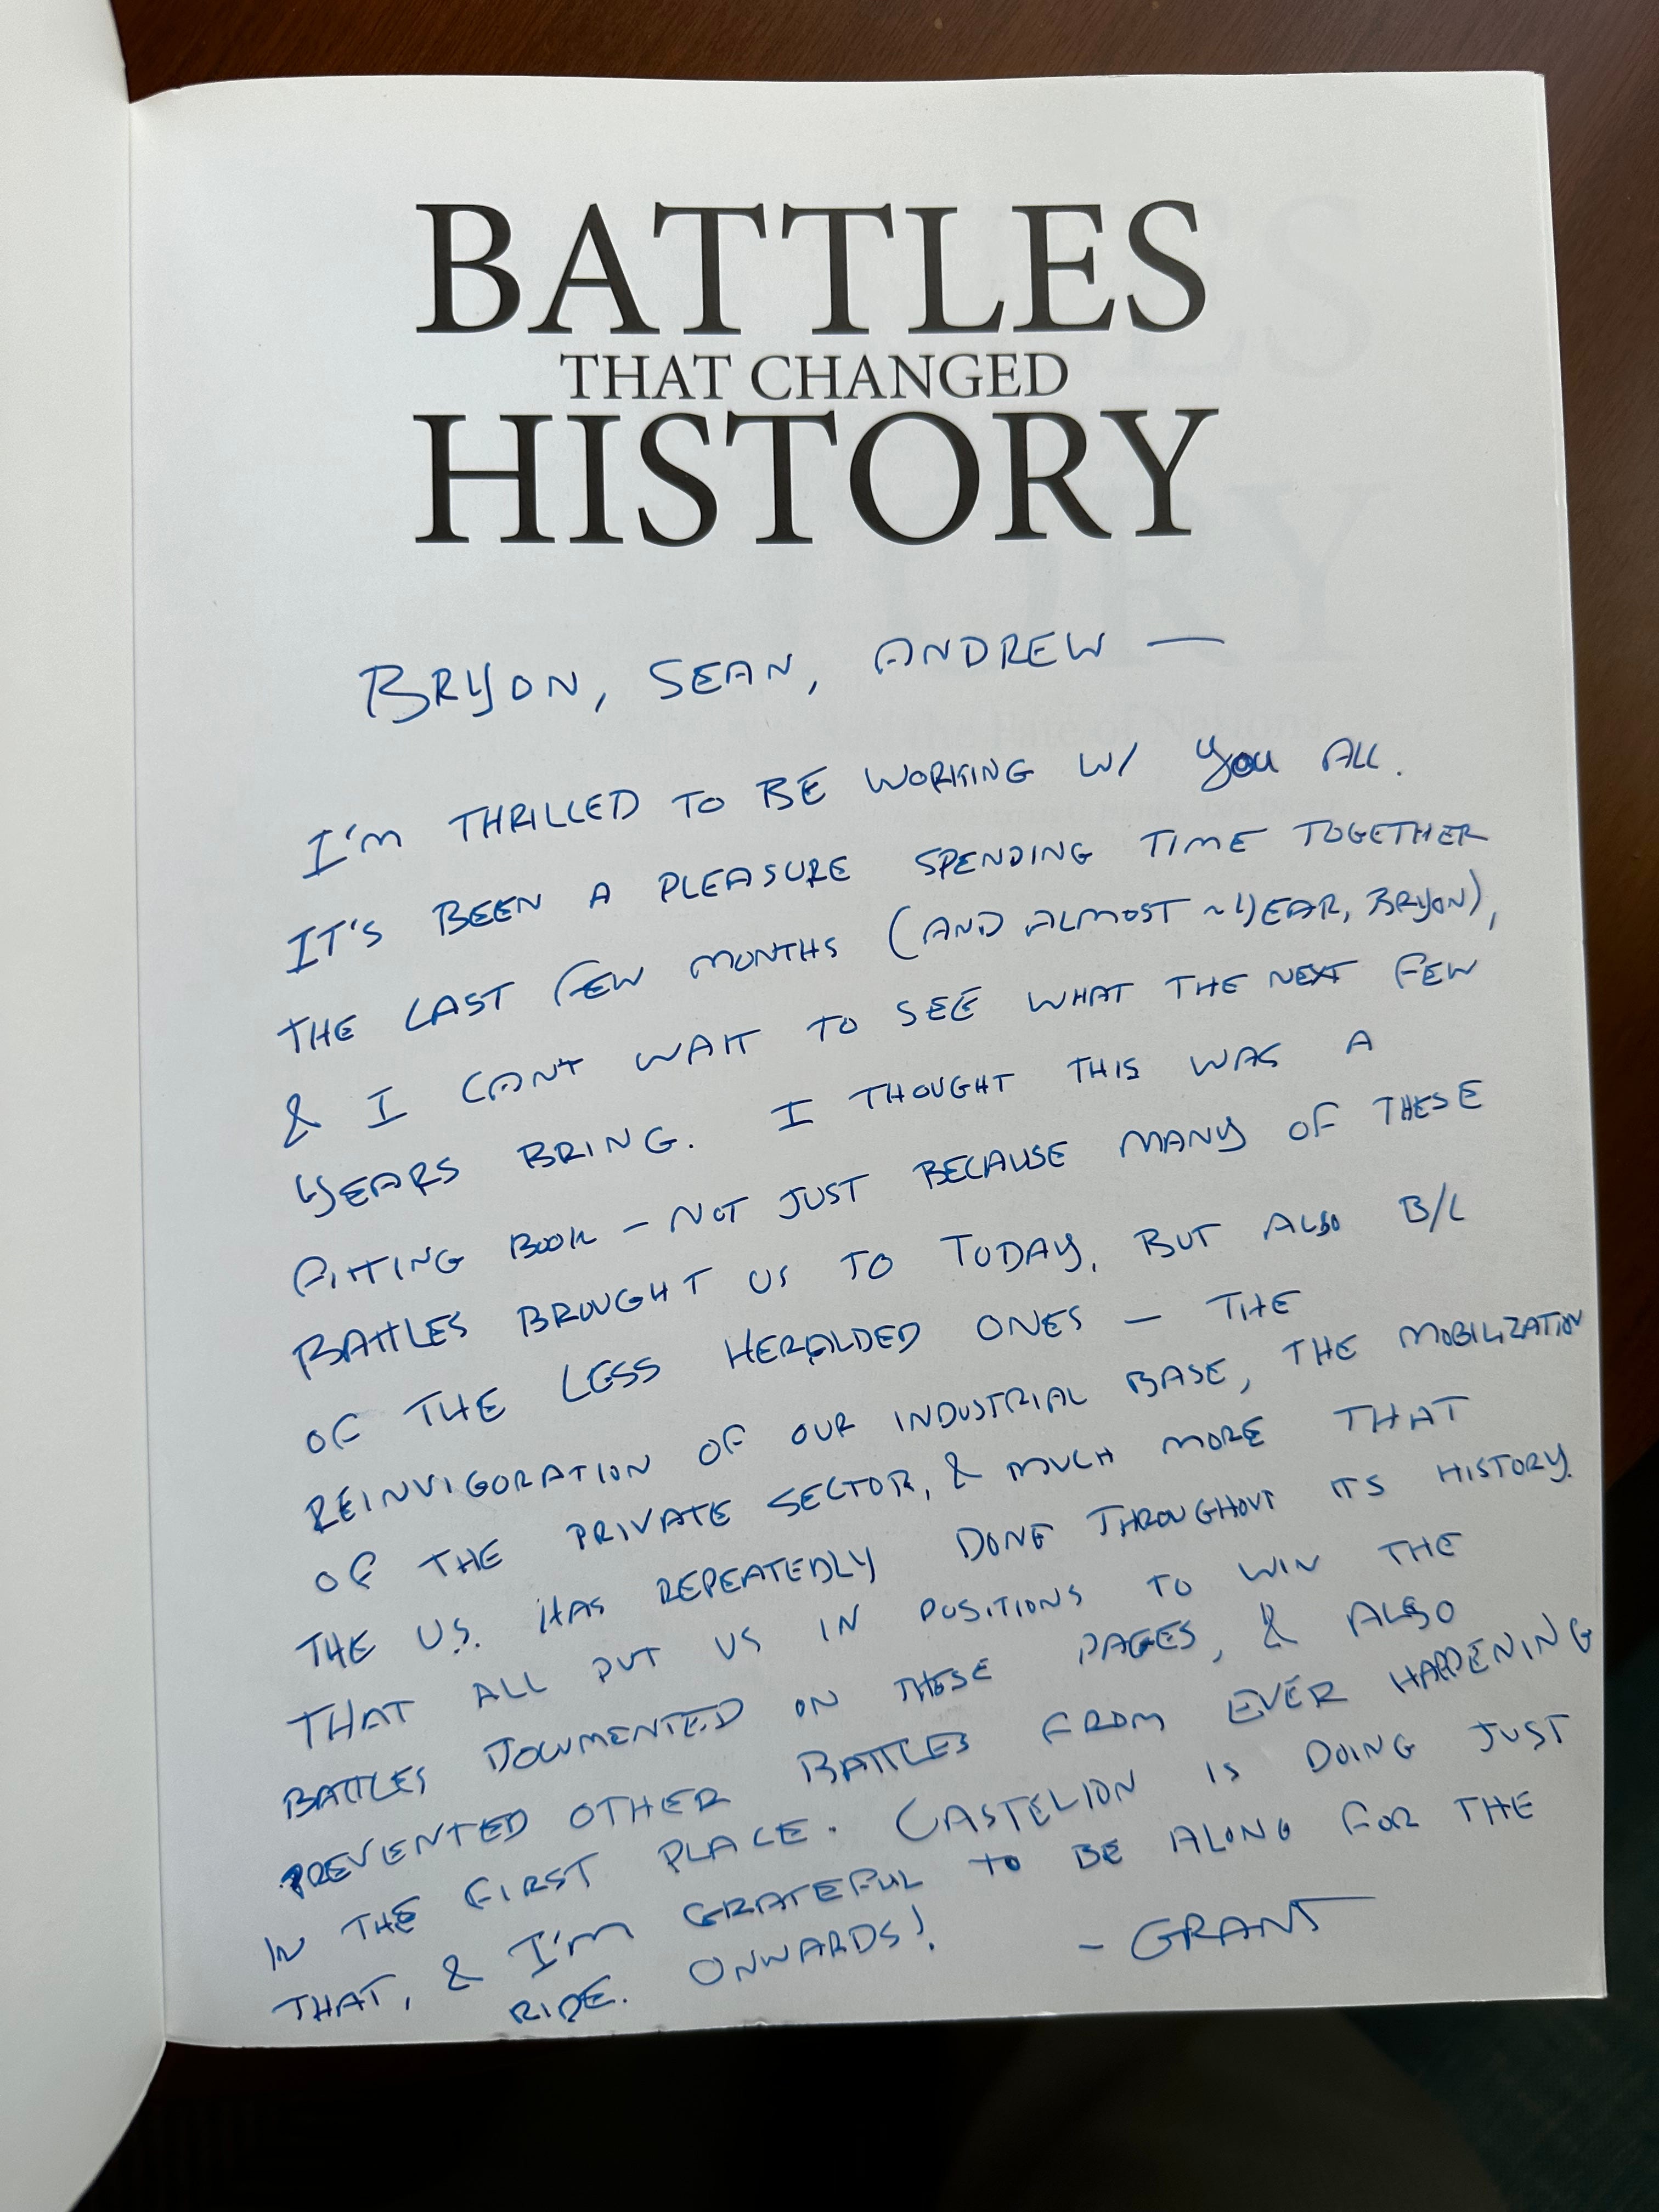 BATTLES
THAT CHANGED
HISTORY
BRYON, SEAN, ANDREW —
I'M THRILLED TO BE WORKING W/ YOU ALL.
IT'S BEEN A PLEASURE SPENDING TIME TOGETHER
THE LAST FEW MONTHS (AND ALMOST ~YEAR, BRYON),
& I CAN'T WAIT TO SEE WHAT THE NEXT FEW
YEARS BRING. I THOUGHT THIS WAS A
FITTING BOOK – NOT JUST BECAUSE MANY OF THESE
BATTLES BROUGHT US TO TODAY, BUT ALSO B/C
OF THE LESS HERALDED ONES – THE
REINVIGORATION OF OUR INDUSTRIAL BASE, THE MOBILIZATION
OF THE PRIVATE SECTOR, & MUCH MORE THAT
THE U.S. HAS REPEATEDLY DONE THROUGHOUT ITS HISTORY.
THAT ALL PUT US IN POSITIONS TO WIN THE
BATTLES DOCUMENTED ON THESE PAGES, & ALSO
PREVENTED OTHER BATTLES FROM EVER HAPPENING
IN THE FIRST PLACE. CASTELION IS DOING JUST
THAT, & I'M GRATEFUL TO BE ALONG FOR THE
RIDE. ONWARDS! – GRANT